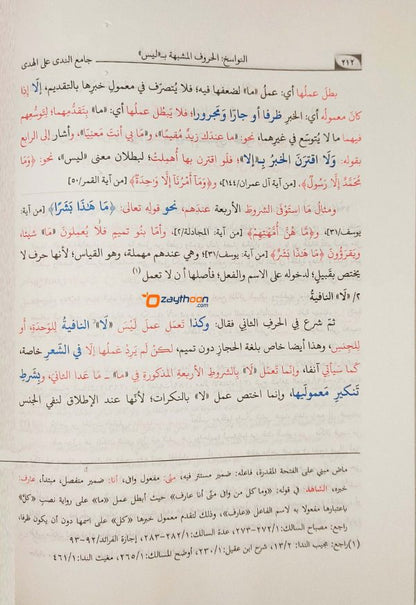 ٢١٢ النواسخ: الحروف المشبهة بـ«ليس» جامع الندى على الهدى
بطل عملُها أي: عملُ «ما» لضعفها فيه؛ فلا يُتصرّف في معمولِ خبرِها بالتقديم، إلّا إذا
كانَ معموله أي: الخبرِ ظرفا أو جارًا وَمَجرورا؛ فلا يَبطُل عملُها أي: «ما» بتقدُّمِهما؛ لتوسُّعِهم
فيهما ما لا يُتوسّع في غيرِهما، نحو: «ما عندك زيدٌ مُقيمًا»، و«مَا بي أنتَ مَعنيّا»، وأشار إلى الرابع
بقوله: وَلَا اقترَنَ الخبرُ بـ«إلا»؛ فلو اقترن بها أُهمِلتْ؛ لبطلان معنى «ليس»، نحو: ﴿وَمَا
مُحَمَّدٌ إِلَّا رَسُولٌ﴾. [من آية آل عمران/١٤٤]، و﴿وَمَآ أَمْرُنَآ إِلَّا وَٰحِدَةٌ﴾ [من آية القمر/٥٠]
ومثالُ مَا اسْتَوْفَى الشروط الأربعة عندَهم، نحو قوله تعالى: ﴿مَا هَٰذَا بَشَرًا﴾ [من آية:
يوسف/٣١]، و﴿مَّا هُنَّ أُمَّهَٰتِهِمْ﴾ [من آية: المجادلة/٢]. وأمّا بنو تميم فلا يُعمِلونَ «مَا» شيئا،
ويَقرَؤُون ﴿مَا هَٰذَا بَشَرٌ﴾ [من آية: يوسف/٣١]؛ وهي عندهم مهملة، وهو القياس؛ لأنها حرف لا
يختص بقَبيلٍ؛ لدخوله على الاسم والفعل؛ فأصلها أن لا تعمل(١)
٢/ «لَا» النافيةُ
zaythoon.com
ثمّ شرع في الحرف الثاني فقال: وكذا تَعمَل عملَ لَيْسَ «لَا» النافيةُ لِلوَحدةِ، أو
للجِنسِ، وهذا أيضا خاص بلغة الحجاز دون تميم، لكنْ لم يَرِدْ عملُها إلّا في الشّعرِ خاصة،
كما سيأتي آنفا، وإنّما تَعمَل «لَا» بالشروطِ الأربعةِ المذكورةِ في «ما» ــ مَا عَدَا الثاني، وبِشَرطِ
تَنكيرِ مَعموليها، وإنما اختص عمل «لا» بالنكرات؛ لأنها عند الإطلاق لنفي الجنس
ماض مبني على الفتحة المقدرة، فاعله: ضمير مستتر فيه، منى: مفعول وافى، أنا: ضمير منفصل، مبتدأ، عارف:
خبره، الشاهد: في قوله: «وما كل من وافى منّى أنا عارف» حيث أبطل عمل «ما» على رواية نصب «كلَّ»
باعتبارها مفعولا به لاسم الفاعل «عارف»، وذلك لتقدم معمول خبرها «كل» على اسمها دون أن يكون ظرفا،
راجع: مصباح السالك: ٢٧٢/١-٢٧٣، عدة السالك: ٢٨٢/١-٢٨٣، إجارة الفرائد/٩٢-٩٣
(١)راجع: مجيب الندا: ١٣/٢، شرح ابن عقيل: ٢٣٠/١، أوضح المسالك: ٢٦٥/١، مغيث الندا: ٤٦١/١